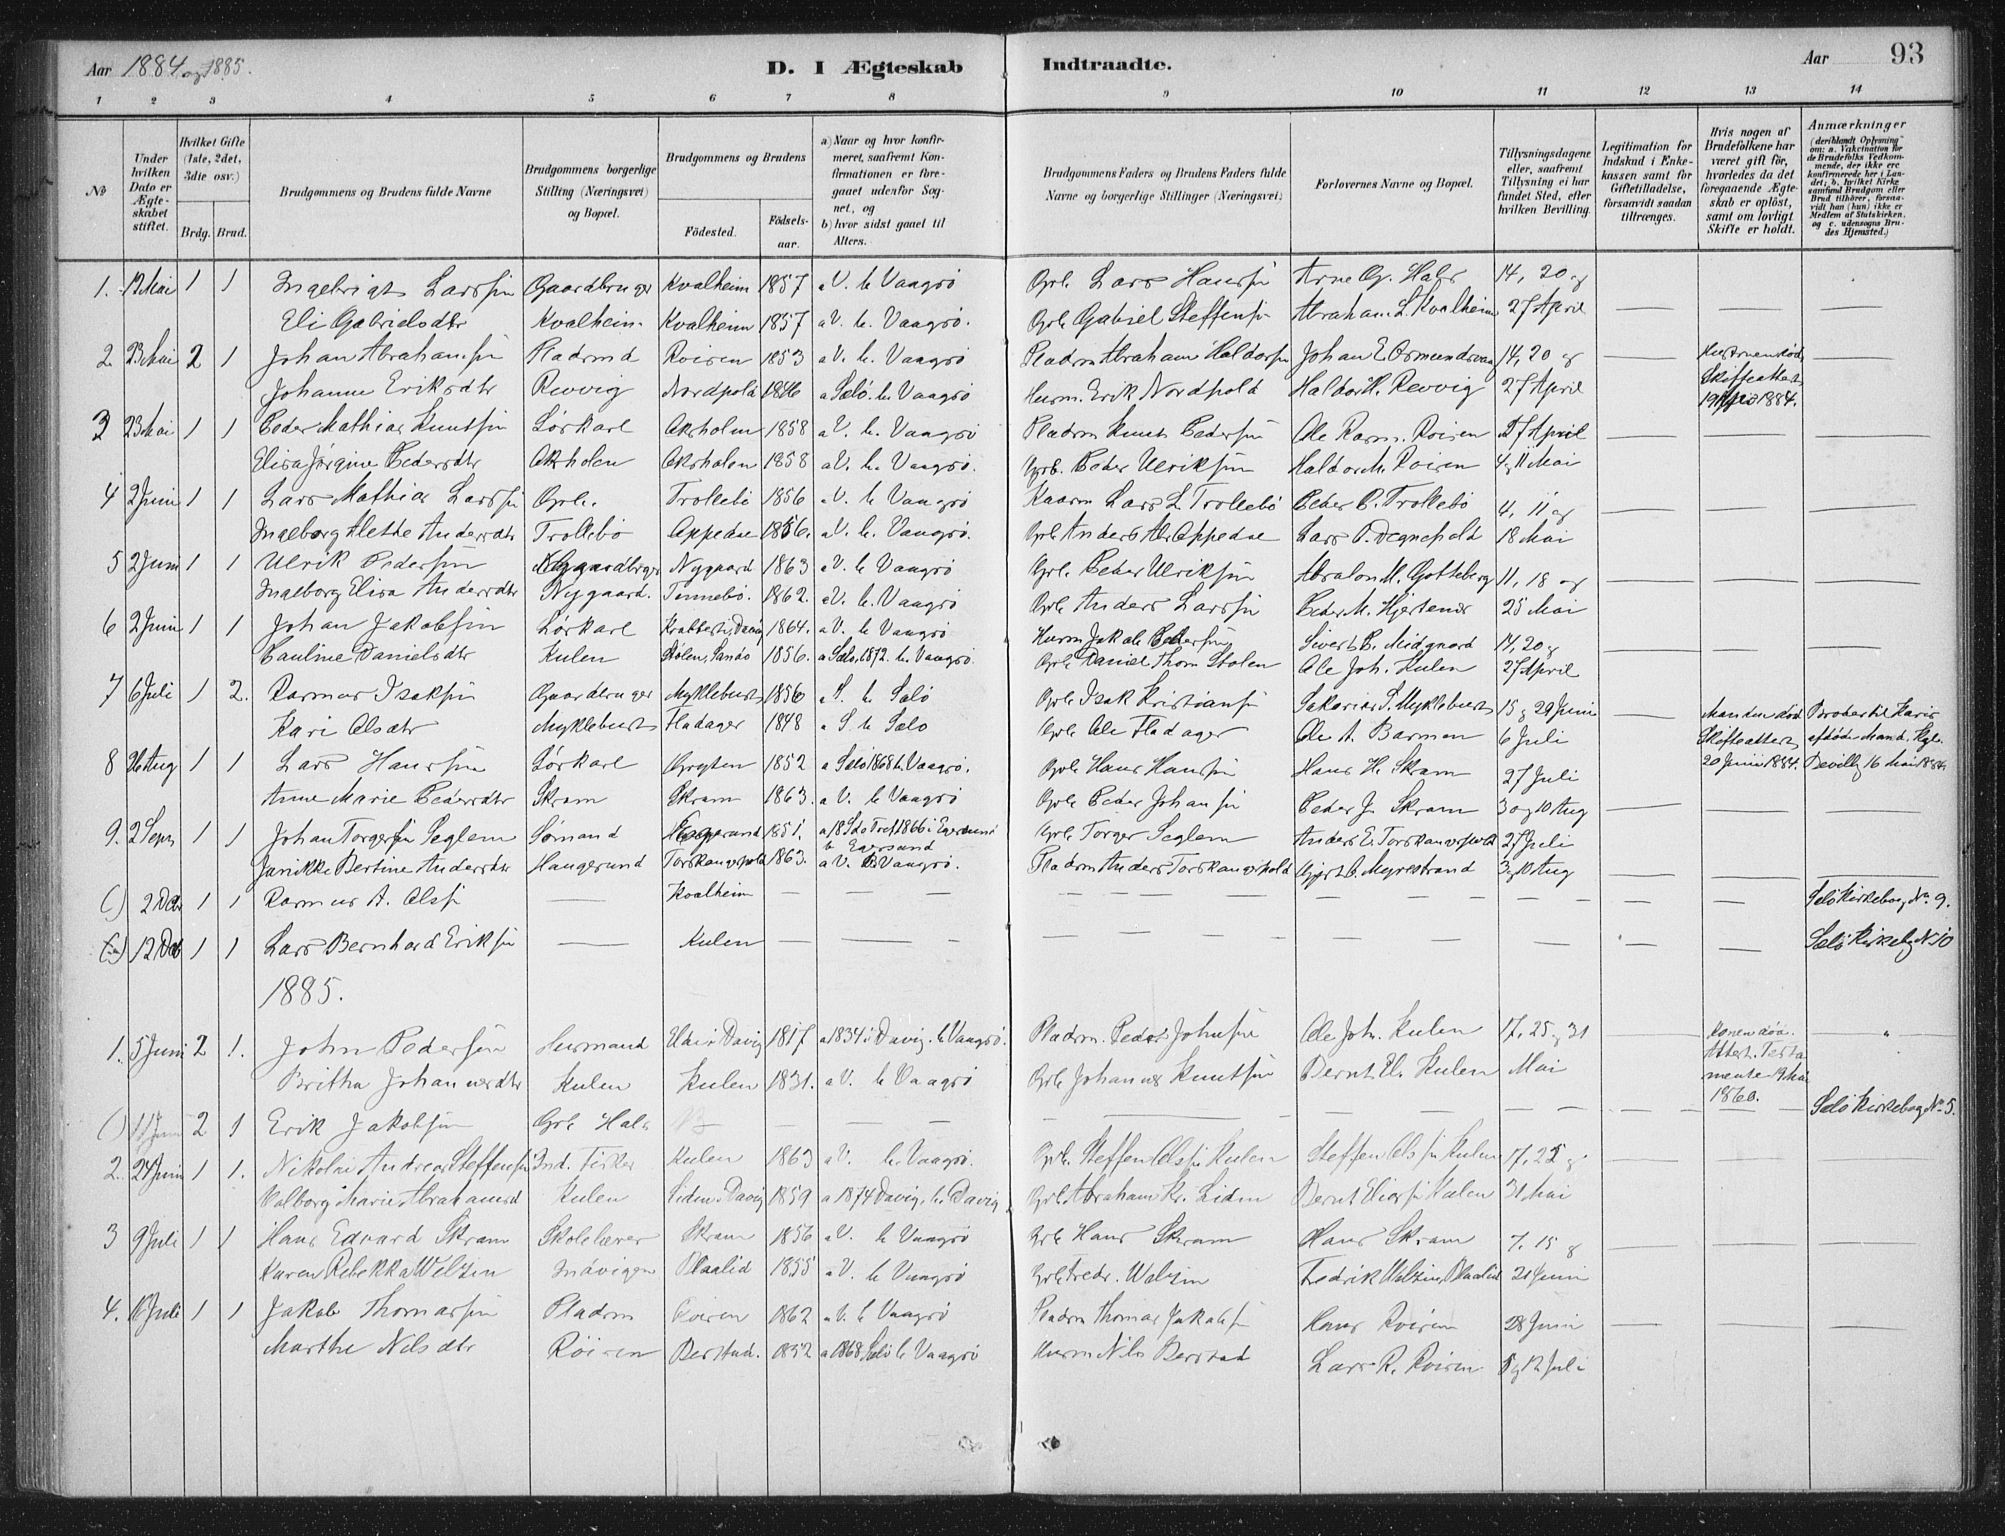 Aar 1884 og 1885.
D. I Ægteskab Indtraadte.
Aar 93
1 2 3 4 5 6 7 8 9 10 11 12 13 14
No
Under hvilken Dato er Ægteskabet stiftet.
Hvilket Gifte (1ste, 2det, 3die osv.)
Brdg. Brud.
Brudgommens og Brudens fulde Navne
Brudgommens borgerlige Stilling (Næringsvei) og Bopæl.
Brudgommens og Brudens
Fødested. Fødselsaar.
a) Naar og hvor konfirmeret, saafremt Konfirmationen er foregaaet udenfor Sognet, og
b) hvor sidst gaaet til Alters.
Brudgommens Faders og Brudens Faders fulde Navne og borgerlige Stillinger (Næringsvei)
Forlovernes Navne og Bopæl.
Tillysningsdagene eller, saafremt Tillysning ei har fundet Sted, efter hvilken Bevilling.
Legitimation for Indskud i Enkekassen samt for Giftetilladelse, forsaavidt saadan tiltrænges.
Hvis nogen af Brudefolkene har været gift før, hvorledes da det foregaaende Ægteskab er opløst, samt om lovligt Skifte er holdt.
Anmærkninger
(deriblandt Oplysning om: a. Vakcination for de Brudefolks Vedkommende, der ikke ere konfirmerede her i Landet; b. hvilket Kirkesamfund Brudgom eller Brud tilhører, forsaavidt han (hun) ikke er Medlem af Statskirken, og c. udensogns Brudes Hjemsted.)
1. 12 Mai 1 1 Ingebrigt Larssøn Gaardbruger Kvalheim 1857 a V. b Vaagsø Grb. Lars Hanssøn Arne O. Hals 14, 20 og
Eli Gabrielsdtr Kvalheim. Kvalheim 1857 a V. b. Vaagsø. Grb Gabriel Steffens. Abraham L. Kvalheim 27 April
2 23 Mai 2 1 Johan Abrahamssøn Pladsmd Roiren 1853 a V. b. Vaagsø Pladsm Abraham Haldorsøn Johan E. Osmundsvaag 14, 20 og
Johanne Eriksdtr Revvig Nordpold 1846 a Selø. b. Vaagsø Husm. Erik Nordpold Haldor H. Revvig 27 April Skifteattest 19 1884.
3 23 Mai 1 1 Peder Mathias Knutsøn Løskarl Axholm 1858 a V. b. Vaagsø Pladsm Knut Pedersøn Ole Rasm. Roiren 27 April
Elisa Jørgine Pedersdtr Axholm Axholm 1858 a V. b. Vaagsø. Grb. Peder Ulriksøn Haldor M. Roiren 4, 11 Mai
4 2 Juni 1 1 Lars Mathias Larssøn Grb. Trollebø 1856 a V. b Vaagsø Kaarm Lars L Trollebø Peder P. Trollebø 4, 11 og
Ingeborg Alethe Andersdtr Trollebø Oppedse 1856. a V. b. Vaagsø. Grb Anders Oppedse Lars P. Degnepold 18 Mai
5 2 Juni 1 1 Ulrik Pedersøn Gaardbruger Nygaard 1863 a V. b Vaagsø Grb. Peder Ulriksøn Absalon M. Gotteberg 11, 18 og
Ingeborg Elisa Andersdtr Nygaard. Tennebø. 1862. a V. b. Vaagsø Grb Anders Larssøn Peder M. Hjertenes 25 Mai
6 2 Juni 1 1 Johan Jakobsøn Løskarl Krabbest. Davig 1864. a V. b Vaagsø Husm Jakob Pedersøn Sivert P. Midgaard 14, 20 og
Pauline Danielsdtr Kulen Stolen, Sandø 1856. a Selø, 1872. b. Vaagsø. Grb Daniel Thom Stolen Ole Joh. Kulen 27 April
7 6 Juli 1 2. Rasmus Isaksøn Gaardbruger Myklebust 1850 a S. b Selø Grb Isak Kristiansøn Sakarias S. Myklebust 15 og 29 Juni Manden død Broder til Karis
Kari Olsdtr Myklebust Fladager 1848 a S b Selø Grb Ole Fladager Ole A. Barmen 6 Juli Skifteattest afdøde Mand. Kgl.
8 26 Aug 1 1 Lars Hanssøn Løskarl Gryten 1852 a Selø 1868 b. Vaagsø. Grb Hans Hanssøn Hans H. Skram 27 Juli 20 Juni 1884. Bevilg 16 Mai 1884.
Anne Marie Pedersdtr Skram Skram 1863. a V. b Vaagsø Grb Peder Johansøn Peder J. Skram 3 og 10 Aug
9. 2 Sept 1 1 Johan Torgersøn Seglem Sømand Eggersund 1851. a 18 Sdetref 1866 i Egersund b Egersund Grb Torger Seglem Anders E. Torskangerpold 27 Juli
Janikke Bertine Andersdtr Haugesund Torskangerpold 1863. a V. b Vaagsø. Pladsm Anders Torskangerpold Gjert O. Myrestrand 3 og 10 Aug
( ) 2 Oct 1 1 Rasmus A. Olss. — Kvalheim — — — — — — — — — Selø Kirkebog No. 9.
( ) 12 Oct 1 1 Lars Bernhard Eriksøn — Kulen — — — — — — — — Selø Kirkebg No 10
1885.
1. 5 Juni 2 1. John Pedersøn Husmand Davig 1817 a 1834 i Davig. b Vaagsø. Pladsm. Peder Johnsøn Ole Joh. Kulen 17, 25 og 31 Konen død. "
Britha Johannesdtr Kulen Kulen 1831. a V. b Vaagsø Grb Johannes Knutsøn Bernt El. Kulen Mai Attest. Testamente 9 Mai 1860.
( ) 11 Juni 2 1 Erik Jakobsøn Grb Hals — — — — — — — — Selø Kirkebog No 5.
2. 24 Juni 1 1. Nikolai Andreas Steffensøn Ind. Fisker Kulen 1863 a V. b. Vaagsø. Grb. Steffen Olss Kulen Steffen Olss Kulen 17, 25 og
Valborg Marie Abrahamsd Kulen Liden, Davig 1859 a 1874 Davig. b. Davig Grb. Abraham Kr. Liden Bernt Eliess Kulen 31 Mai
3 9 Juli 1 1 Hans Edvard Skram Skolelærer Skram 1856 a V. b Vaagsø Grb Hans Skram Hans Skram 7. 15 og
Karen Rebekka Welzin Indvigen Blaalid 1855 a V. b Vaagsø Grb Fredr. Welzin Fredrik Welzin, Blaalid 21 Juni
4. 16 Juli 1 1 Jakob Thomassøn Pladsm Roiren 1862 a V. b Vaagsø Pladsm Thomas Jakobs. Hans Roiren 28 Juni
Marthe Nilsdtr Röiren Berstad. 1852 a 1868 Selø b Vaagsø Husm Nils Berstad Lars R. Roiren 5 og 12 Juli